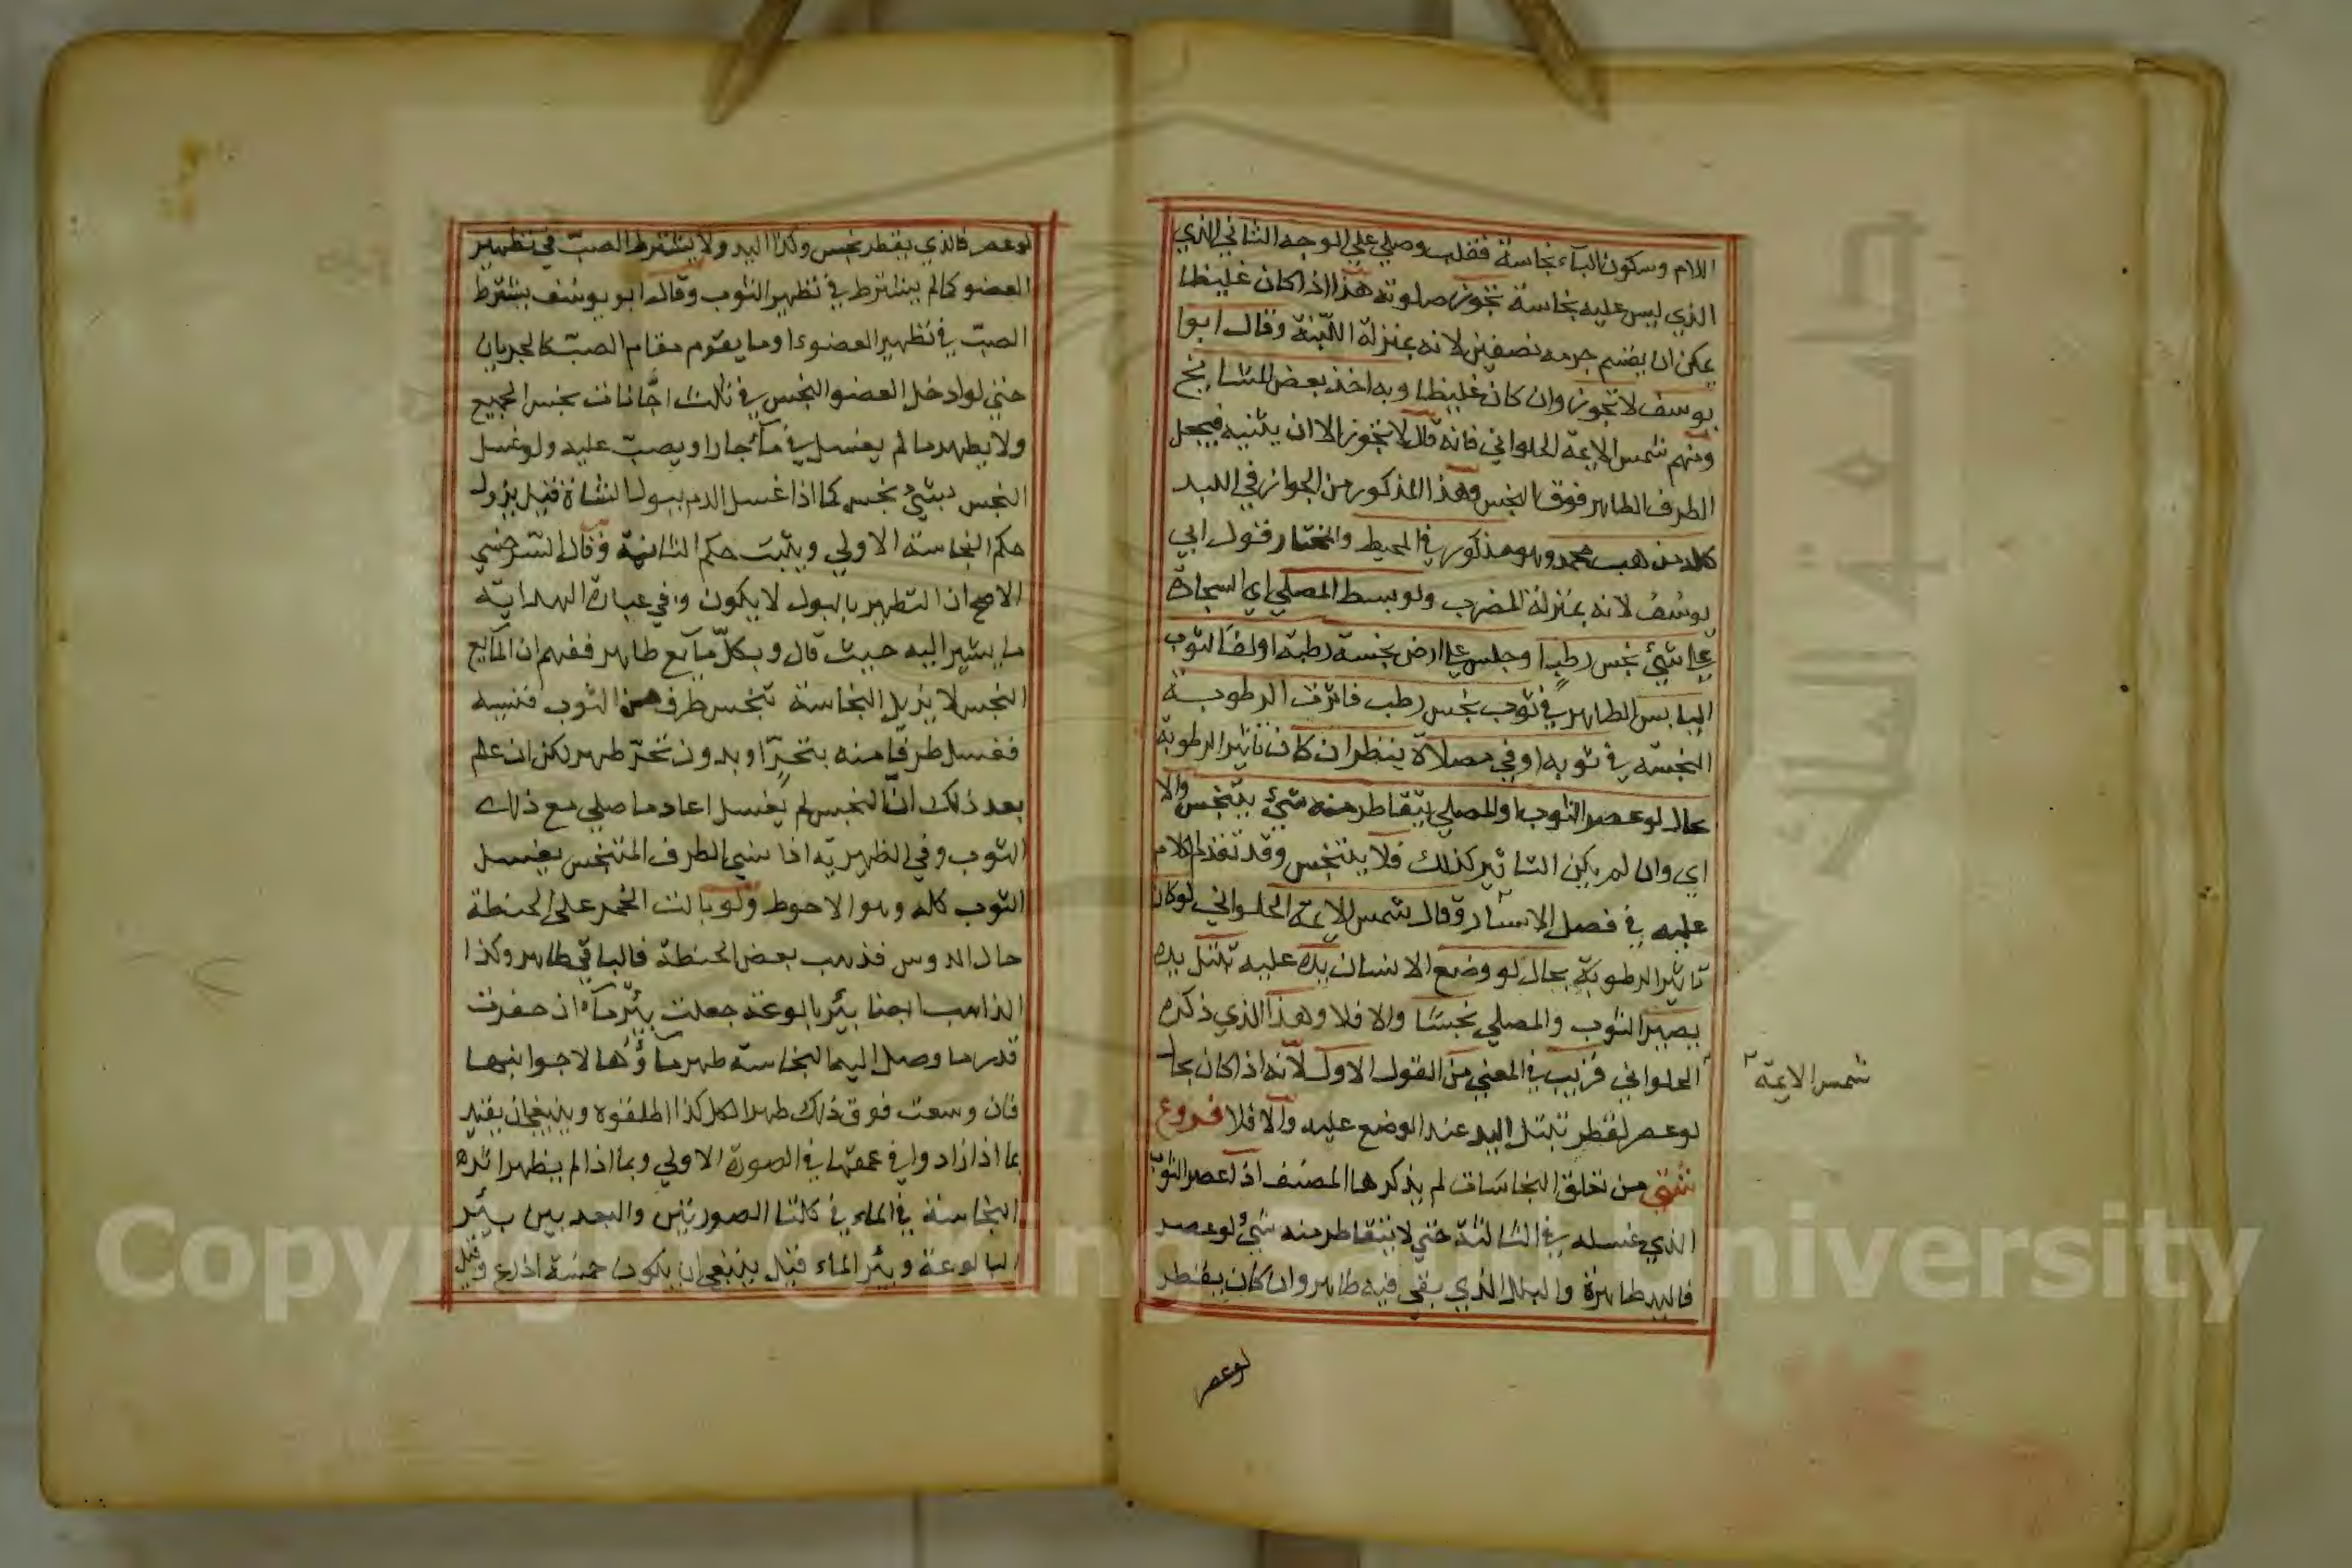 اللام وسكون الباء نجاسة فقلب وصلى علي الوجه الثاني الذي
الذي ليس عليه نجاسة تجوز صلوته هذا اذا كان غليظا
يمكن ان يقسم جرمه نصفين لانه بمنزلة اللبنة وقال ابوا
يوسف لا تجوز وان كان غليظا وبه اخذ بعض المشايخ
ومنهم شمس الايمة الحلواني فانه قال لا تجوز الا ان يثنيه فيجعل
الطرف الطاهر فوق النجس وهذا المذكور من الجواز في اللبد
كله مذهب محمد وهو مذكور في المحيط والمختار قول ابي
يوسف لانه بمنزلة المضرب ولو بسط المصلي اي السجادة
علي شئ نجس رطبا وجلس علي ارض نجسة رطبة اولف الثوب
اليابس الطاهر في ثوب نجس رطب فاثرت الرطوبة
النجسة في ثوبه اوفي مصلاة ينظر ان كان تاثير الرطوبة
بحال لو عصر الثوب او المصلي يتقاطر منه شئ يتنجس والا
اي وان لم يكن التاثير كذلك فلا يتنجس وقد تقدم الكلام
عليه في فصل الاسئار وقال شمس الايمة الحلواني لو كان
تاثير الرطوبة بحال لو وضع الانسان يده عليه تبتل يده
يصير الثوب والمصلي نجسا والا فلا وهذا الذي ذكره
الحلواني قريب في المعني من القول الاول لانه اذا كان بحا
شمس الايمة
لو عصر لقطر تبتل اليد عند الوضع عليه والا فلا فروع
شتي من تعلق النجاسات لم يذكرها المصنف اذا عصر الثوب
الذي غسله في الثالثة حتي لا يتقاطر منه شئ لو عصر
فاليد طاهرة والبلل الذي بقي فيه طاهر وان كان يقطر
لوعصر
لو عصر فالذي يقطر نجس وكذا اليد ولا يشترط الصب في تطهير
العضو كما لم يشترط في تطهير الثوب وقال ابو يوسف يشترط
الصب في تطهير العضو او ما يقوم مقام الصب كالجريان
حتي لو ادخل العضو النجس في ثلث اجانات نجس الجميع
ولا يطهر ما لم يغسل في ماء جار او يصب عليه ولو غسل
النجس بشئ نجس كما اذا غسل الدم ببول الشاة قيل يزول
حكم النجاسة الاولي ويثبت حكم الثانية وقال السرخسي
الاصح ان التطهير بالبول لا يكون وفي عبارة الهداية
ما يشير اليه حيث قال وبكل مايع طاهر ففهم ان المايع
النجس لا يزيل النجاسة تنجس طرف من الثوب فنسيه
فغسل طرفا منه بتحرّ او بدون تحرّ طهر لكن ان علم
بعد ذلك ان النجس لم يغسل اعاد ما صلي مع ذلك
الثوب وفي الظهيرية اذا نسي الطرف المتنجس يغسل
الثوب كله وهو الاحوط ولو بالت الحمر علي الحنطة
حال الدوس فذهب بعض الحنطة فالباقي طاهر وكذا
الذاهب ايضا بئر بالوعة جعلت بئر ماء ان حفرت
قدر ما وصل اليها النجاسة طهر ماؤها لا جوانبها
فان وسعت فوق ذلك طهر الكل كذا اطلقوه وينبغي ان يقيد
بما اذا زادوا في عمقها في الصورة الاولي وبما اذا لم يظهر اثره
النجاسة في الماء في كلتا الصورتين والبعد بين بئر
البالوعة وبئر الماء قيل ينبغي ان يكون خمسة اذرع وقيل
Copyright © King Saud University